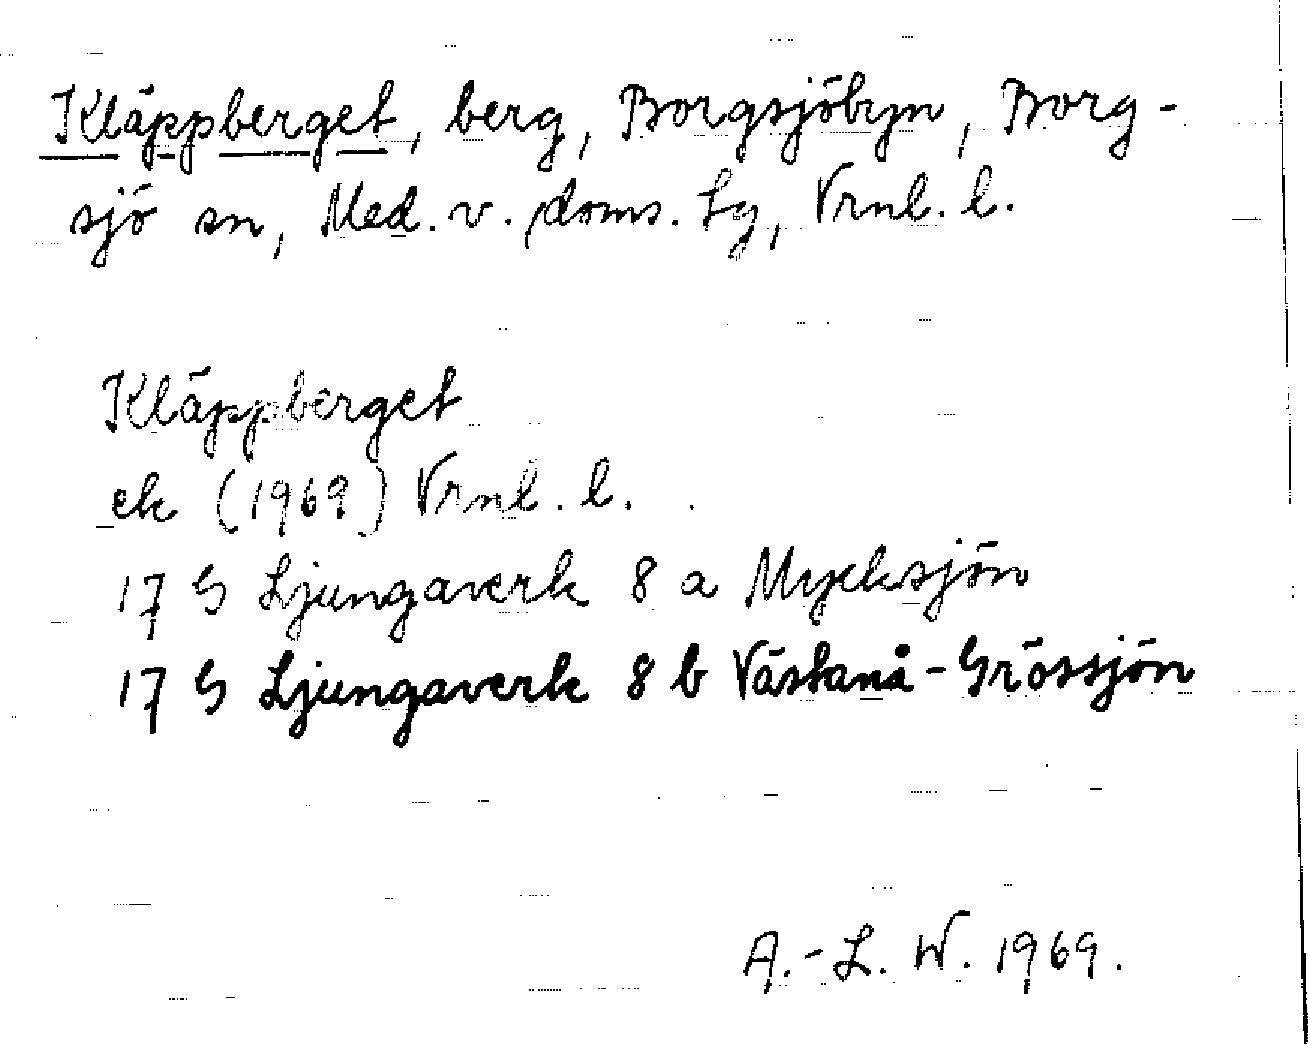 Kläppberget, berg, Borgsjöbyn, Borg-
sjö sn, Med. v. doms. Lg, Vrnl. l.
Kläppberget
ek (1969) Vrnl. l.
17 G Ljungaverk 8 a Mycksjön
17 G Ljungaverk 8 b Västanå-Grössjön
A.-L. W. 1969.